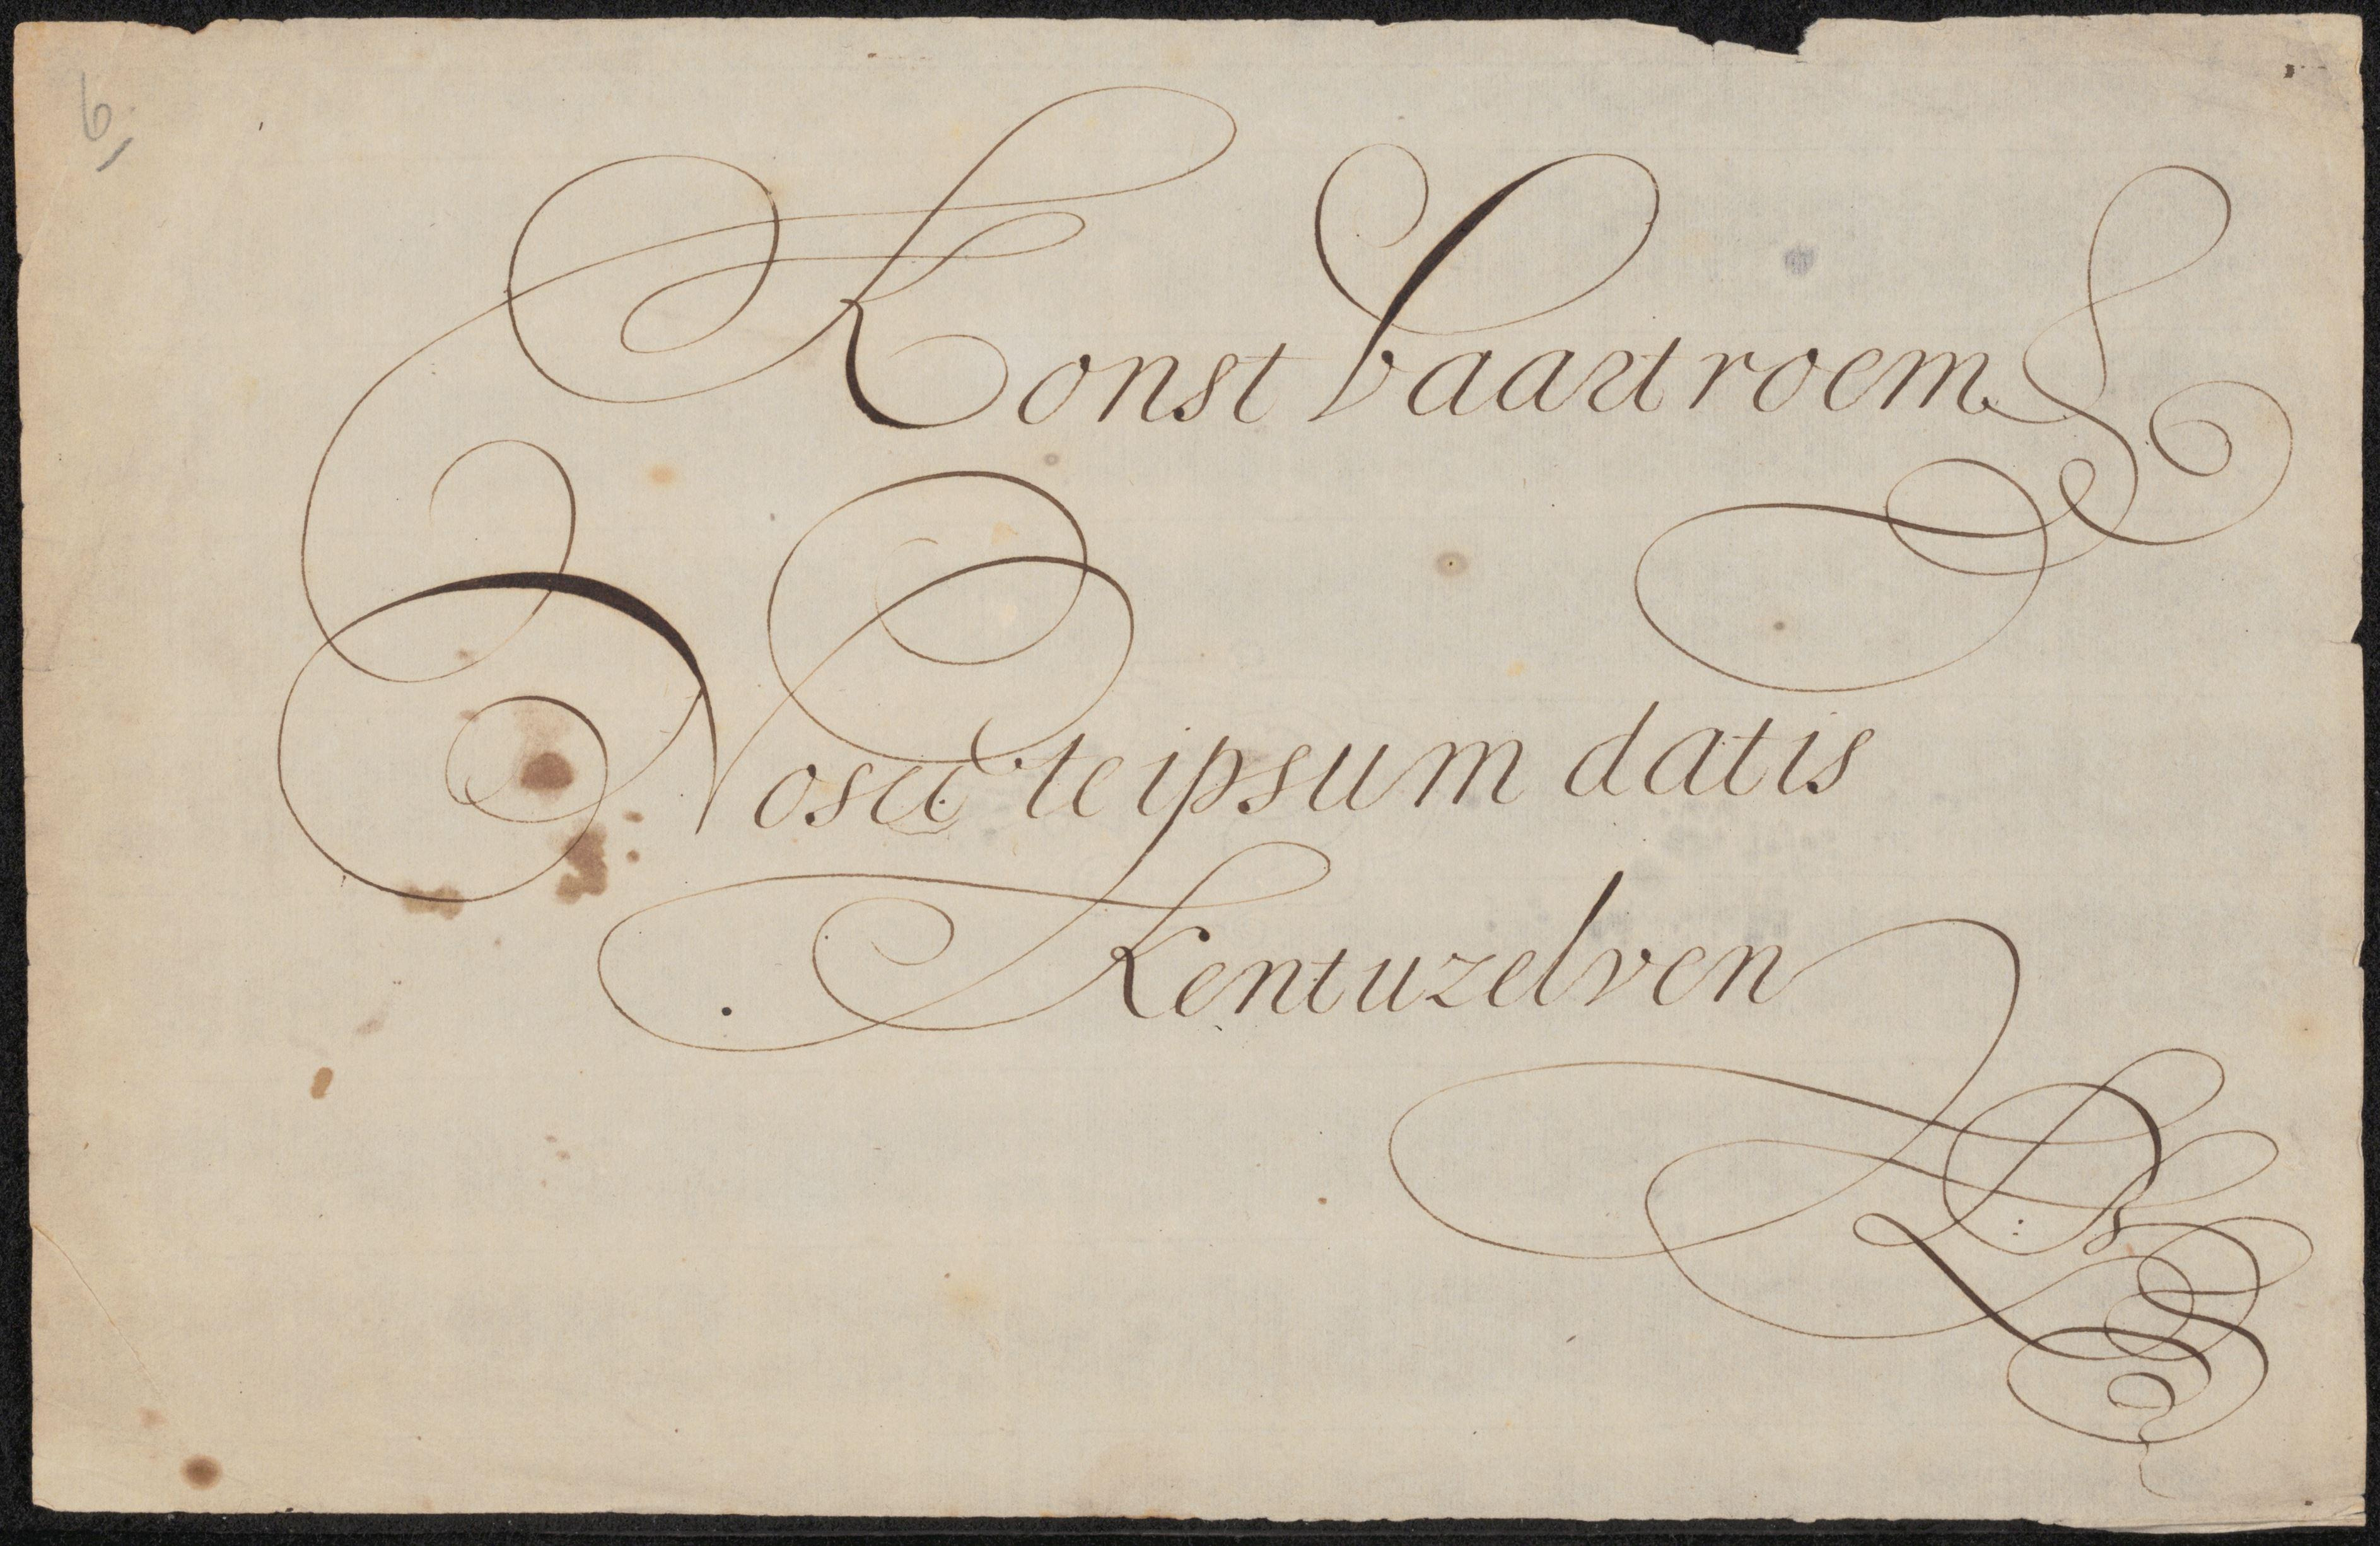 6,
Konst baart roem
Nosce te ipsum dat is
Kent u zelven